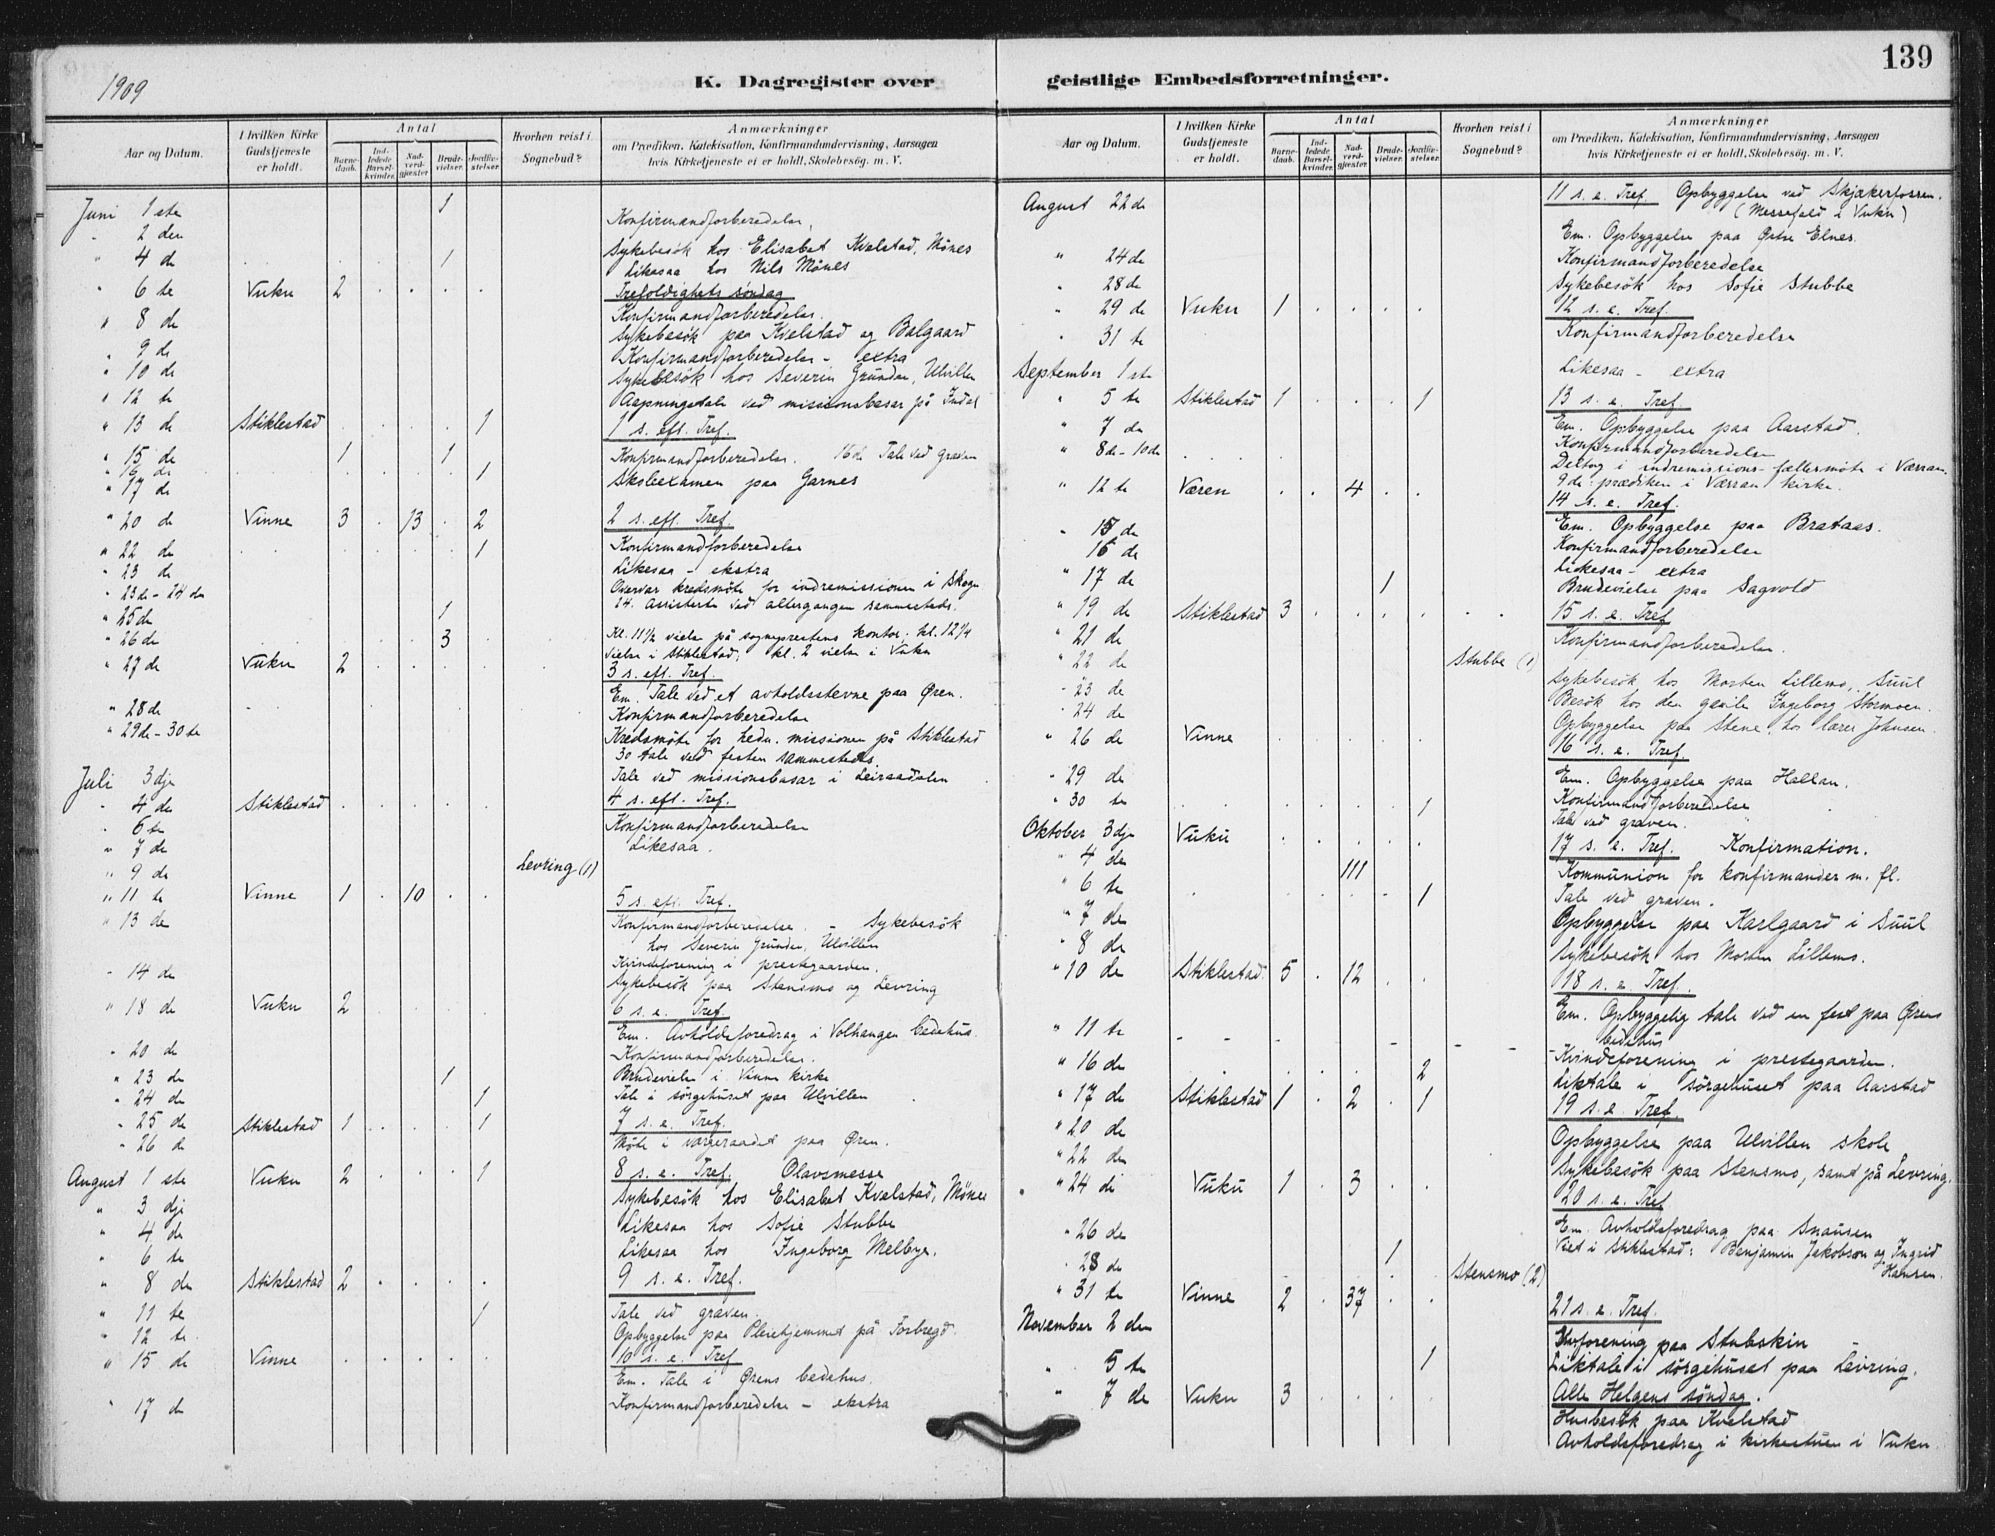 1909
K. Dagregister over geistlige Embedsforretninger.
139
Aar og Datum. | I hvilken Kirke Gudstjeneste er holdt. | Antal | Barnedaab. | Indledede Barselkvinder. | Nadverdgjæster. | Brudevielser. | Jordfæstelser. | Hvorhen reist i Sognebud? | Anmærkninger om Prædiken, Katekisation, Konfirmandundervisning, Aarsagen hvis Kirketjeneste ei er holdt, Skolebesøg. m. V.
Juni 1ste 1
" 2den Konfirmandforberedelse.
" 4de 1 Sykebesök hos Elisabet Kvelstad, Mönes
Likesaa hos Nils Mönes
" 6te Vuku 2 Trefoldighets söndag
" 8de Konfirmandforberedelse.
Sykebesök paa Kvelstad og Balgaard
" 9de Konfirmandforberedelse - extra
" 10de Sykebesök hos Severin Grunden, Ulvillen
" 12te Aapningstale ved missionsbasar på Indal
" 13de Stiklestad 1 1 s. eft. Tref.
" 15de 1 1 Konfirmandforberedelse. 16de Tale ved graven
" 16de 1
" 17de Skoleexamen paa Garnes
" 20de Vinne 3 13 2 2 s. eft. Tref.
" 22de 1 Konfirmandforberedelse
" 23de Likesaa - ekstra
" 23de - 24de Overvar kredsmöte for indremissionen i Skogn
24. Assisterte ved altergangen sammesteds.
" 25de 1
" 26de 3 Kl. 11 1/2 vielse på sogneprestens kontor, kl. 12 1/4
vielse i Stiklestad, kl. 2 vielse i Vuku
" 27de Vuku 2 3 s. eft. Tref.
Em. Tale ved et avholdsstevne paa Øren.
" 28de Konfirmandforberedelse
" 29de - 30te Kredsmöte for hedn. missionen på Stiklestad
30 tale ved festen sammesteds.
Juli 3dje Tale ved missionsbasar i Leiraadalen
" 4de Stiklestad 4 s. eft. Tref.
" 6te Konfirmandforberedelse
" 7de Likesaa.
" 9de Levring (1)
" 11te Vinne 1 10 5 s. eft. Tref.
" 13de Konfirmandforberedelse. - Sykebesök
hos Severin Grunden, Ulvillen
" 14de Kvindeforening i prestegaarden.
Sykebesök paa Stensmo og Levring
" 18de Vuku 2 6 s. e. Tref.
Em. Avholdsforedrag i Volhaugen bedehus.
" 20de Konfirmandforberedelse.
" 23de 1 Brudevielse i Vinne kirke
" 24de 1 Tale i sörgehuset paa Ulvillen
" 25de Stiklestad 1 1 7 s. e. Tref.
" 26de Möte i vergeraadet paa Øren.
August 1ste Vuku 2 1 8 s. e. Tref. Olavsmesse
" 3dje Sykebesök hos Elisabet Kvelstad, Mönes
" 4de Likesaa hos Sofie Stubbe
" 6te Likesaa hos Ingeborg Melbye.
" 8de Stiklestad 2 9 s. e. Tref.
" 11te 1 Tale ved graven.
" 12te Opbyggelse paa Pleiehjemmet på Forbregd.
" 15de Vinne 10 s. e. Tref
Em. Tale i Ørens bedehus.
" 17de Konfirmandforberedelse - ekstra
Aar og Datum. | I hvilken Kirke Gudstjeneste er holdt. | Antal | Barnedaab. | Indledede Barselkvinder. | Nadverdgjæster. | Brudevielser. | Jordfæstelser. | Hvorhen reist i Sognebud? | Anmærkninger om Prædiken, Katekisation, Konfirmandundervisning, Aarsagen hvis Kirketjeneste ei er holdt, Skolebesög. m. V.
August 22de 11 s. e. Tref. Opbyggelse ved Skjækerfossen.
(Messefald i Vuku)
Em. Opbyggelse paa Østre Elnes.
" 24de Konfirmandforberedelse
" 28de Sykebesök hos Sofie Stubbe
" 29de Vuku 1 12 s. e. Tref.
" 31te Konfirmandforberedelse
September 1ste Likesaa - extra
" 5te Stiklestad 1 1 13 s. e. Tref.
Em. Opbyggelse paa Aarstad.
" 7de Konfirmandforberedelse
" 8de - 10de Deltog i indremissions-fællesmöte i Værran.
9de: prædiken i Værran kirke.
" 12te Væren 4 14 s. e. Tref.
Em. Opbyggelse paa Brataas.
" 15de Konfirmandforberedelse
" 16de Likesaa - extra
" 17de 1 Brudevielse paa Sagvold
" 19de Stiklestad 3 15 s. e. Tref
" 21de Konfirmandforberedelse.
" 22de Stubbe (1)
Sykebesök hos Morten Lillemo, Suul
" 23de Besök hos den gamle Ingeborg Stormoen.
" 24de Opbyggelse paa Stene, hos lærer Johnsen.
" 26de Vinne 16 s. e. Tref.
Em. Opbyggelse paa Hallan.
" 29de Konfirmandforberedelse
" 30te 1 Tale ved graven.
Oktober 3dje Vuku 17 s. e. Tref. Konfirmation.
" 4de 111 Kommunion for konfirmander m. fl.
" 6te 1 Tale ved graven.
" 7de Opbyggelse paa Karlgaard i Suul
" 8de Sykebesök hos Morten Lillemo.
" 10de Stiklestad 5 12 18 s. e. Tref.
Em. Opbyggelig tale ved en fest paa Ørens
bedehus
" 11te Kvindeforening i prestegaarden.
" 16de 2 Liktale i sörgehuset paa Aarstad
" 17de Stiklestad 1 2 1 19 s. e. Tref.
" 20de Opbyggelse paa Ulvillen skole
" 22de Sykebesök paa Stensmo, samt på Levring.
" 24de Vuku 1 3 20 s. e. Tref
Em. Avholdsforedrag paa Snausen
" 26de 1 Viet i Stiklestad: Benjamin Jakobson og Ingrid
Hansen.
" 28de Stensmo (2)
" 31te Vinne 2 37 21 s. e. Tref.
November 2den Kvforening paa Stubskin
" 5te 1 Liktale i sörgehuset paa Levring.
" 7de Vuku 3 Alle Helgens söndag.
Husbesök paa Kvelstad
Avholdsforedrag i kirkestuen i Vuku.